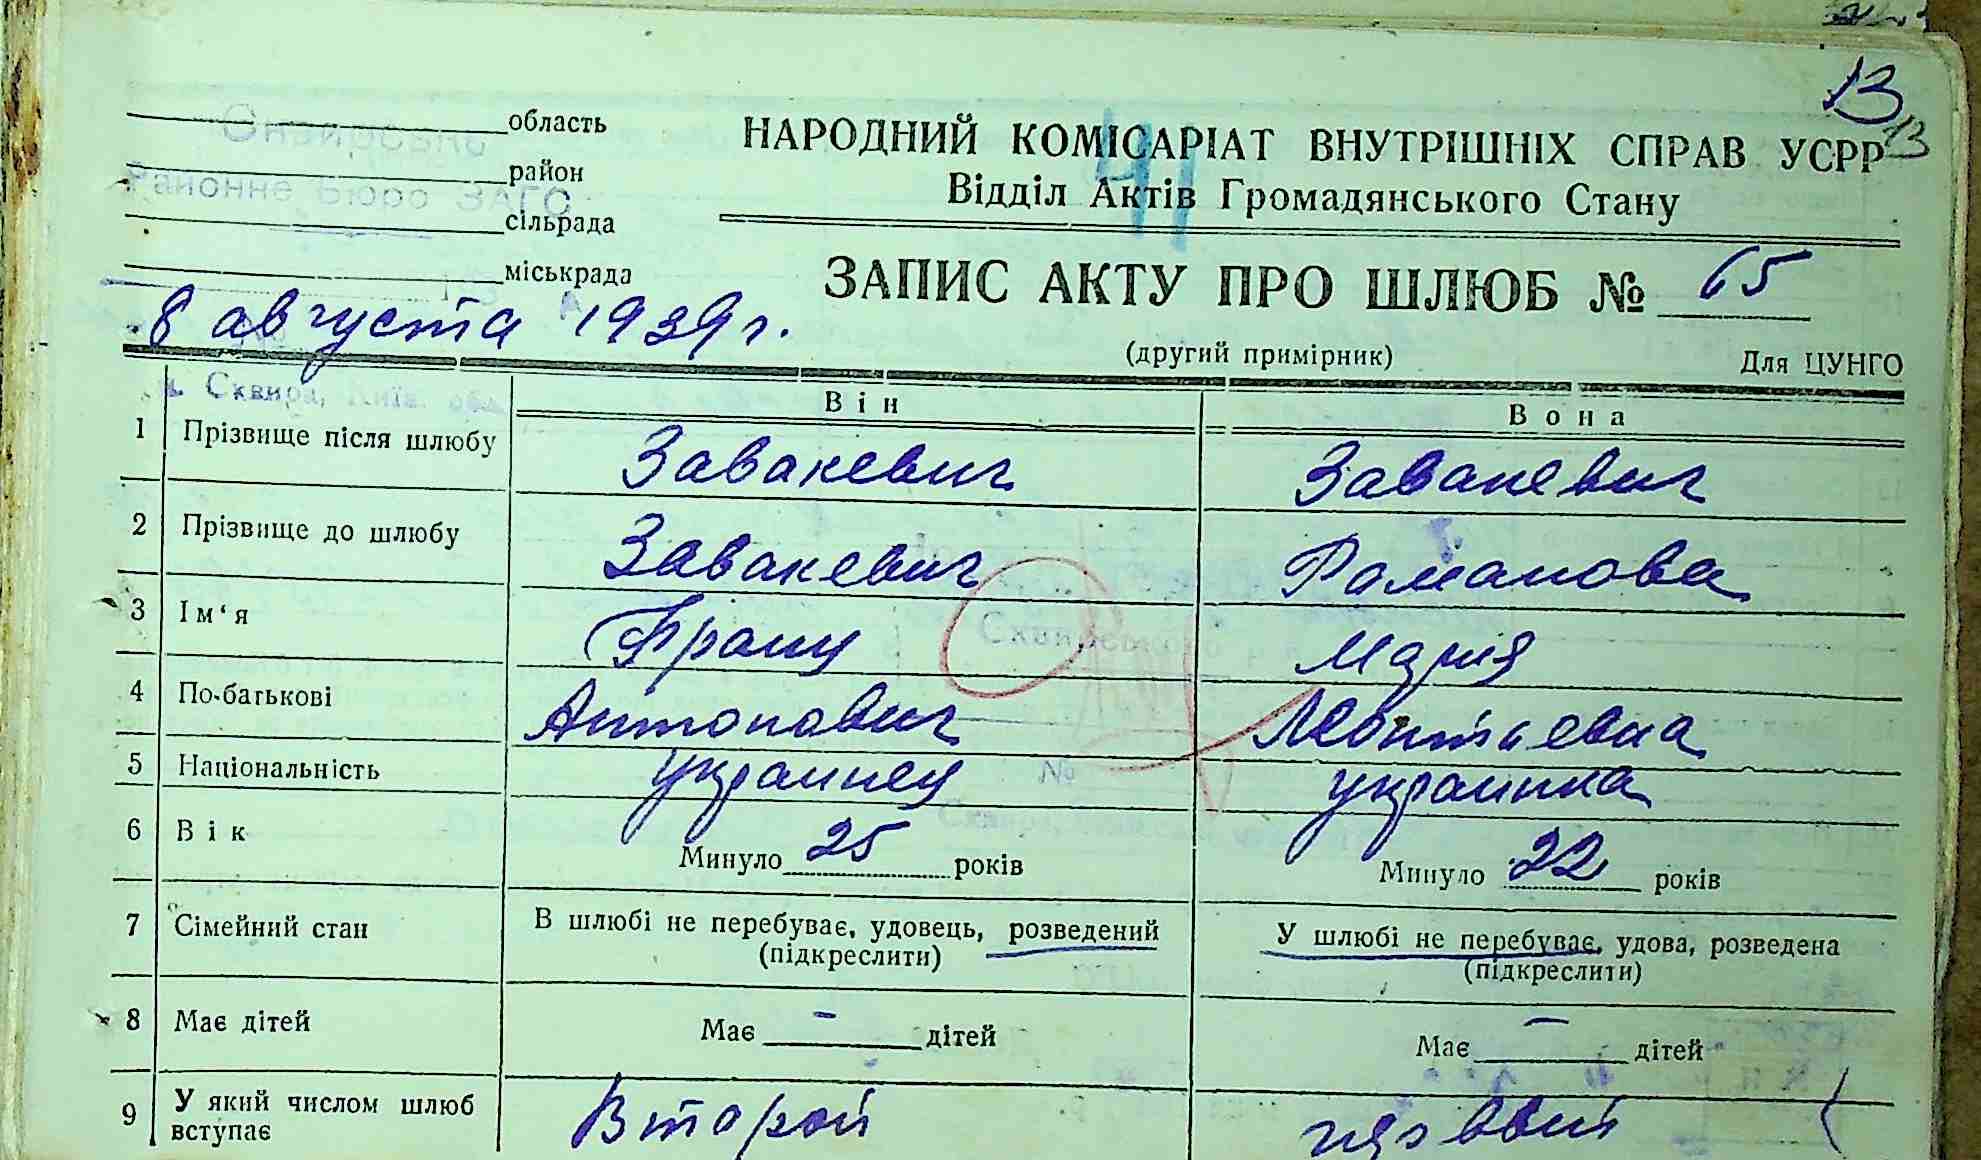 13
13
область
НАРОДНИЙ КОМІСАРІАТ ВНУТРІШНІХ СПРАВ УСРР
район
Відділ Актів Громадянського Стану
Районне Бюро ЗАГС
сільрада
41
міськрада
ЗАПИС АКТУ ПРО ШЛЮБ № 65
8 августа 1939 г.
(другий примірник)
Для ЦУНГО
м. Сквира, Київ. обл.
Він
Вона
1 Прізвище після шлюбу Завакевич Завакевич
2 Прізвище до шлюбу Завакевич Романова
3 Ім‘я Франц Мария
4 По-батькові Антонович Леонтіевна
5 Національність украинец украинка
6 Вік Минуло 25 років Минуло 22 років
7 Сімейний стан В шлюбі не перебуває, удовець, розведений У шлюбі не перебуває, удова, розведена
(підкреслити) (підкреслити)
8 Має дітей Має – дітей Має – дітей
9 У який числом шлюб вступає Второй первый